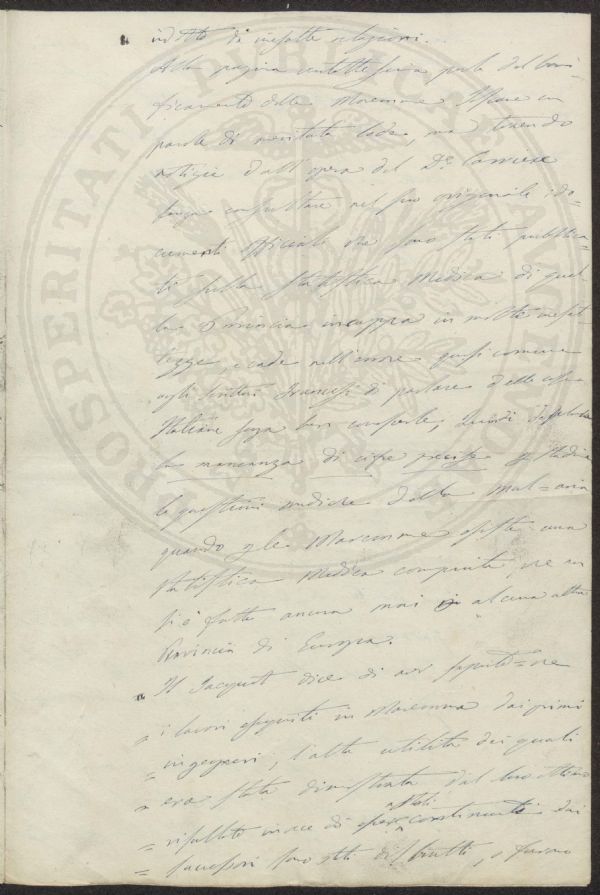 indotto da inesatte relazioni.
Alla pagina centotto parla del boni-
ficamento delle Maremme Toscane con
parole di meritata lode, ma traendo
notizie dall'opera del Dr. Carriere
senza consultare nel suo originale i do-
cumenti officiali che sono stati pubblica-
ti sulla statistica Medica di quel-
la Provincia incappa in molte inesat-
tezze e cade nell'errore quasi comune
agli scrittori Francesi di parlare delle cose
Italiane senza ben conoscerle, quindi
la mancanza di cifre precise per studiare
le questioni mediche della mal=aria
quando per le Maremme esiste una
statistica Medica compiuta, che non
si è fatta ancora mai in alcuna altra
Provincia di Europa.
Il Jacquot dice di aver
i lavori eseguiti in Maremma dai primi
ingegneri, l'alta utilità dei quali
era stata dimostrata dal loro ottimo
risultato invece di essere stati continuati dai
successori sono stati distrutti, o furono
PROSPERITATI PUBLICAE AUGENDAE